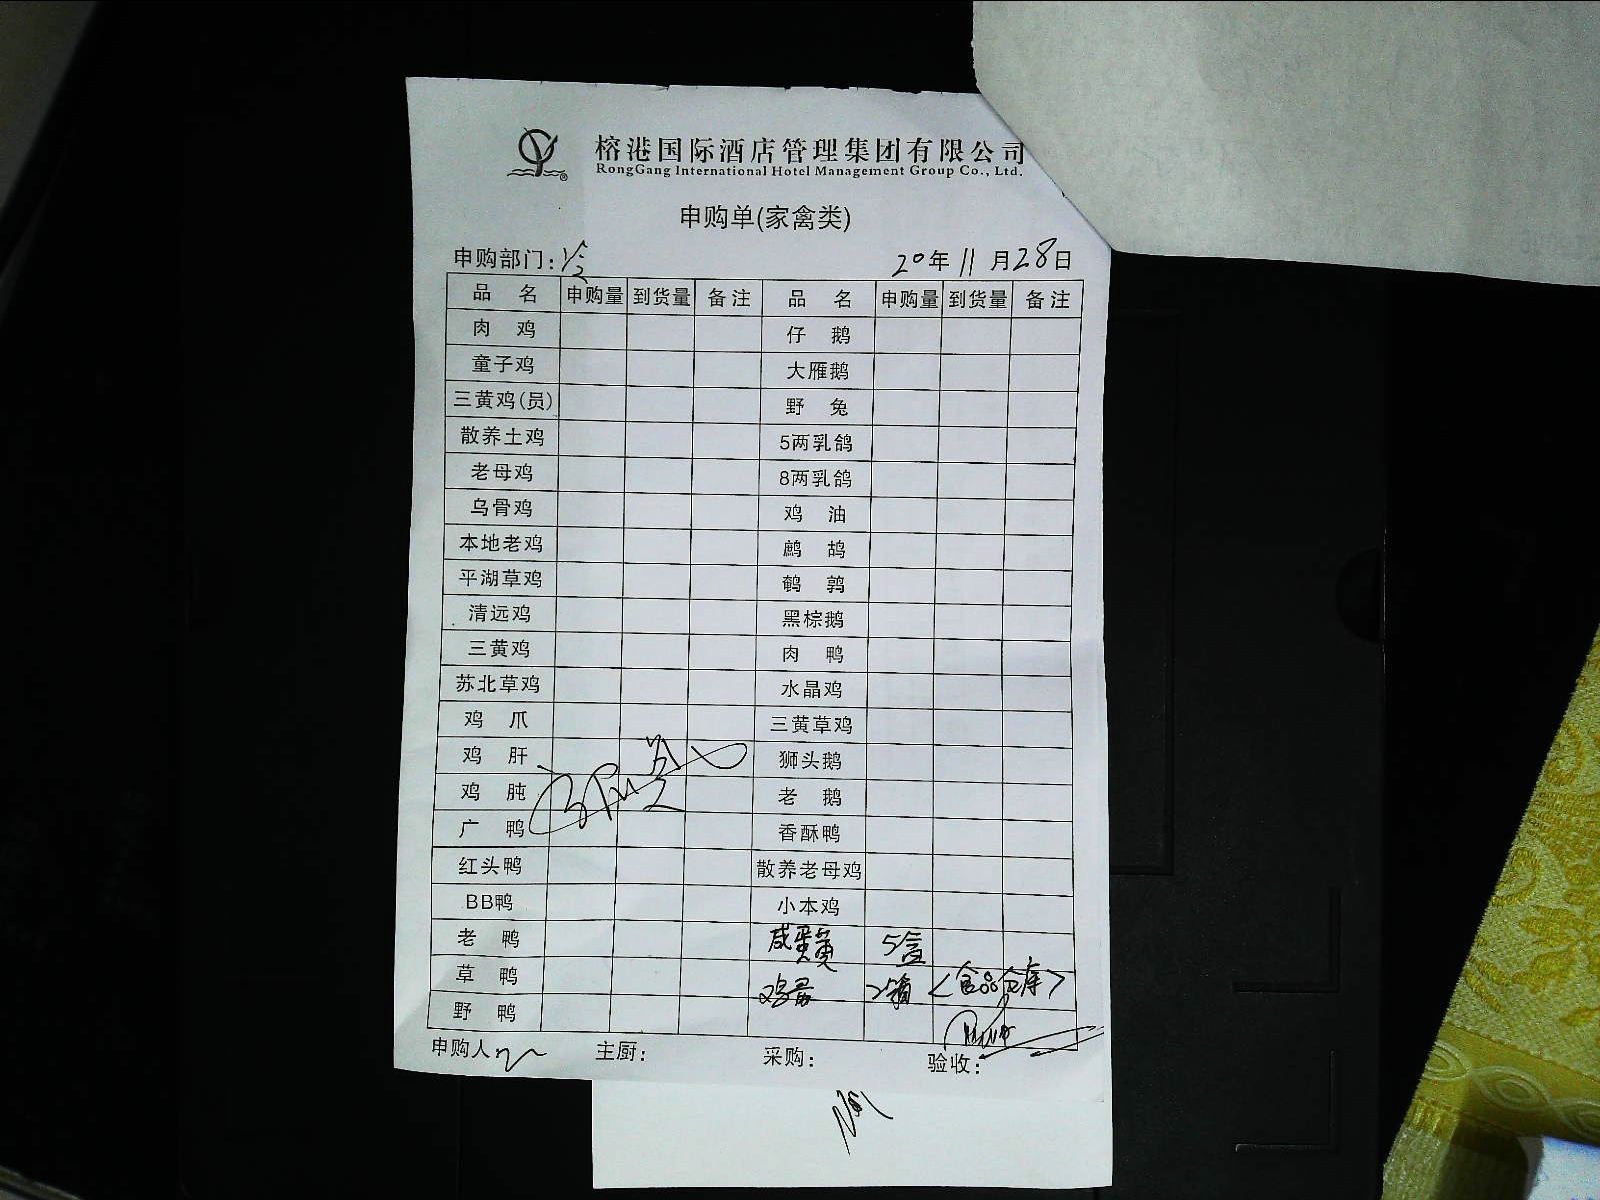 榕港国际酒店管理集团有限公司
RongGang International Hotel Management Group Co., Ltd.
申购单(家禽类)
申购部门: 20年11月28日
品名 申购量 到货量 备注 品名 申购量 到货量 备注
肉鸡 仔鹅
童子鸡 大雁鹅
三黄鸡(员) 野兔
散养土鸡 5两乳鸽
老母鸡 8两乳鸽
乌骨鸡 鸡油
本地老鸡 鹧鸪
平湖草鸡 鹌鹑
清远鸡 黑棕鹅
三黄鸡 肉鸭
苏北草鸡 水晶鸡
鸡爪 三黄草鸡
鸡肝 狮头鹅
鸡肫 老鹅
广鸭 香酥鸭
红头鸭 散养老母鸡
BB鸭 小本鸡
老鸭 咸蛋黄 5盒
草鸭 鸡蛋 2箱 <食品仓库>
野鸭
申购人 主厨: 采购: 验收: